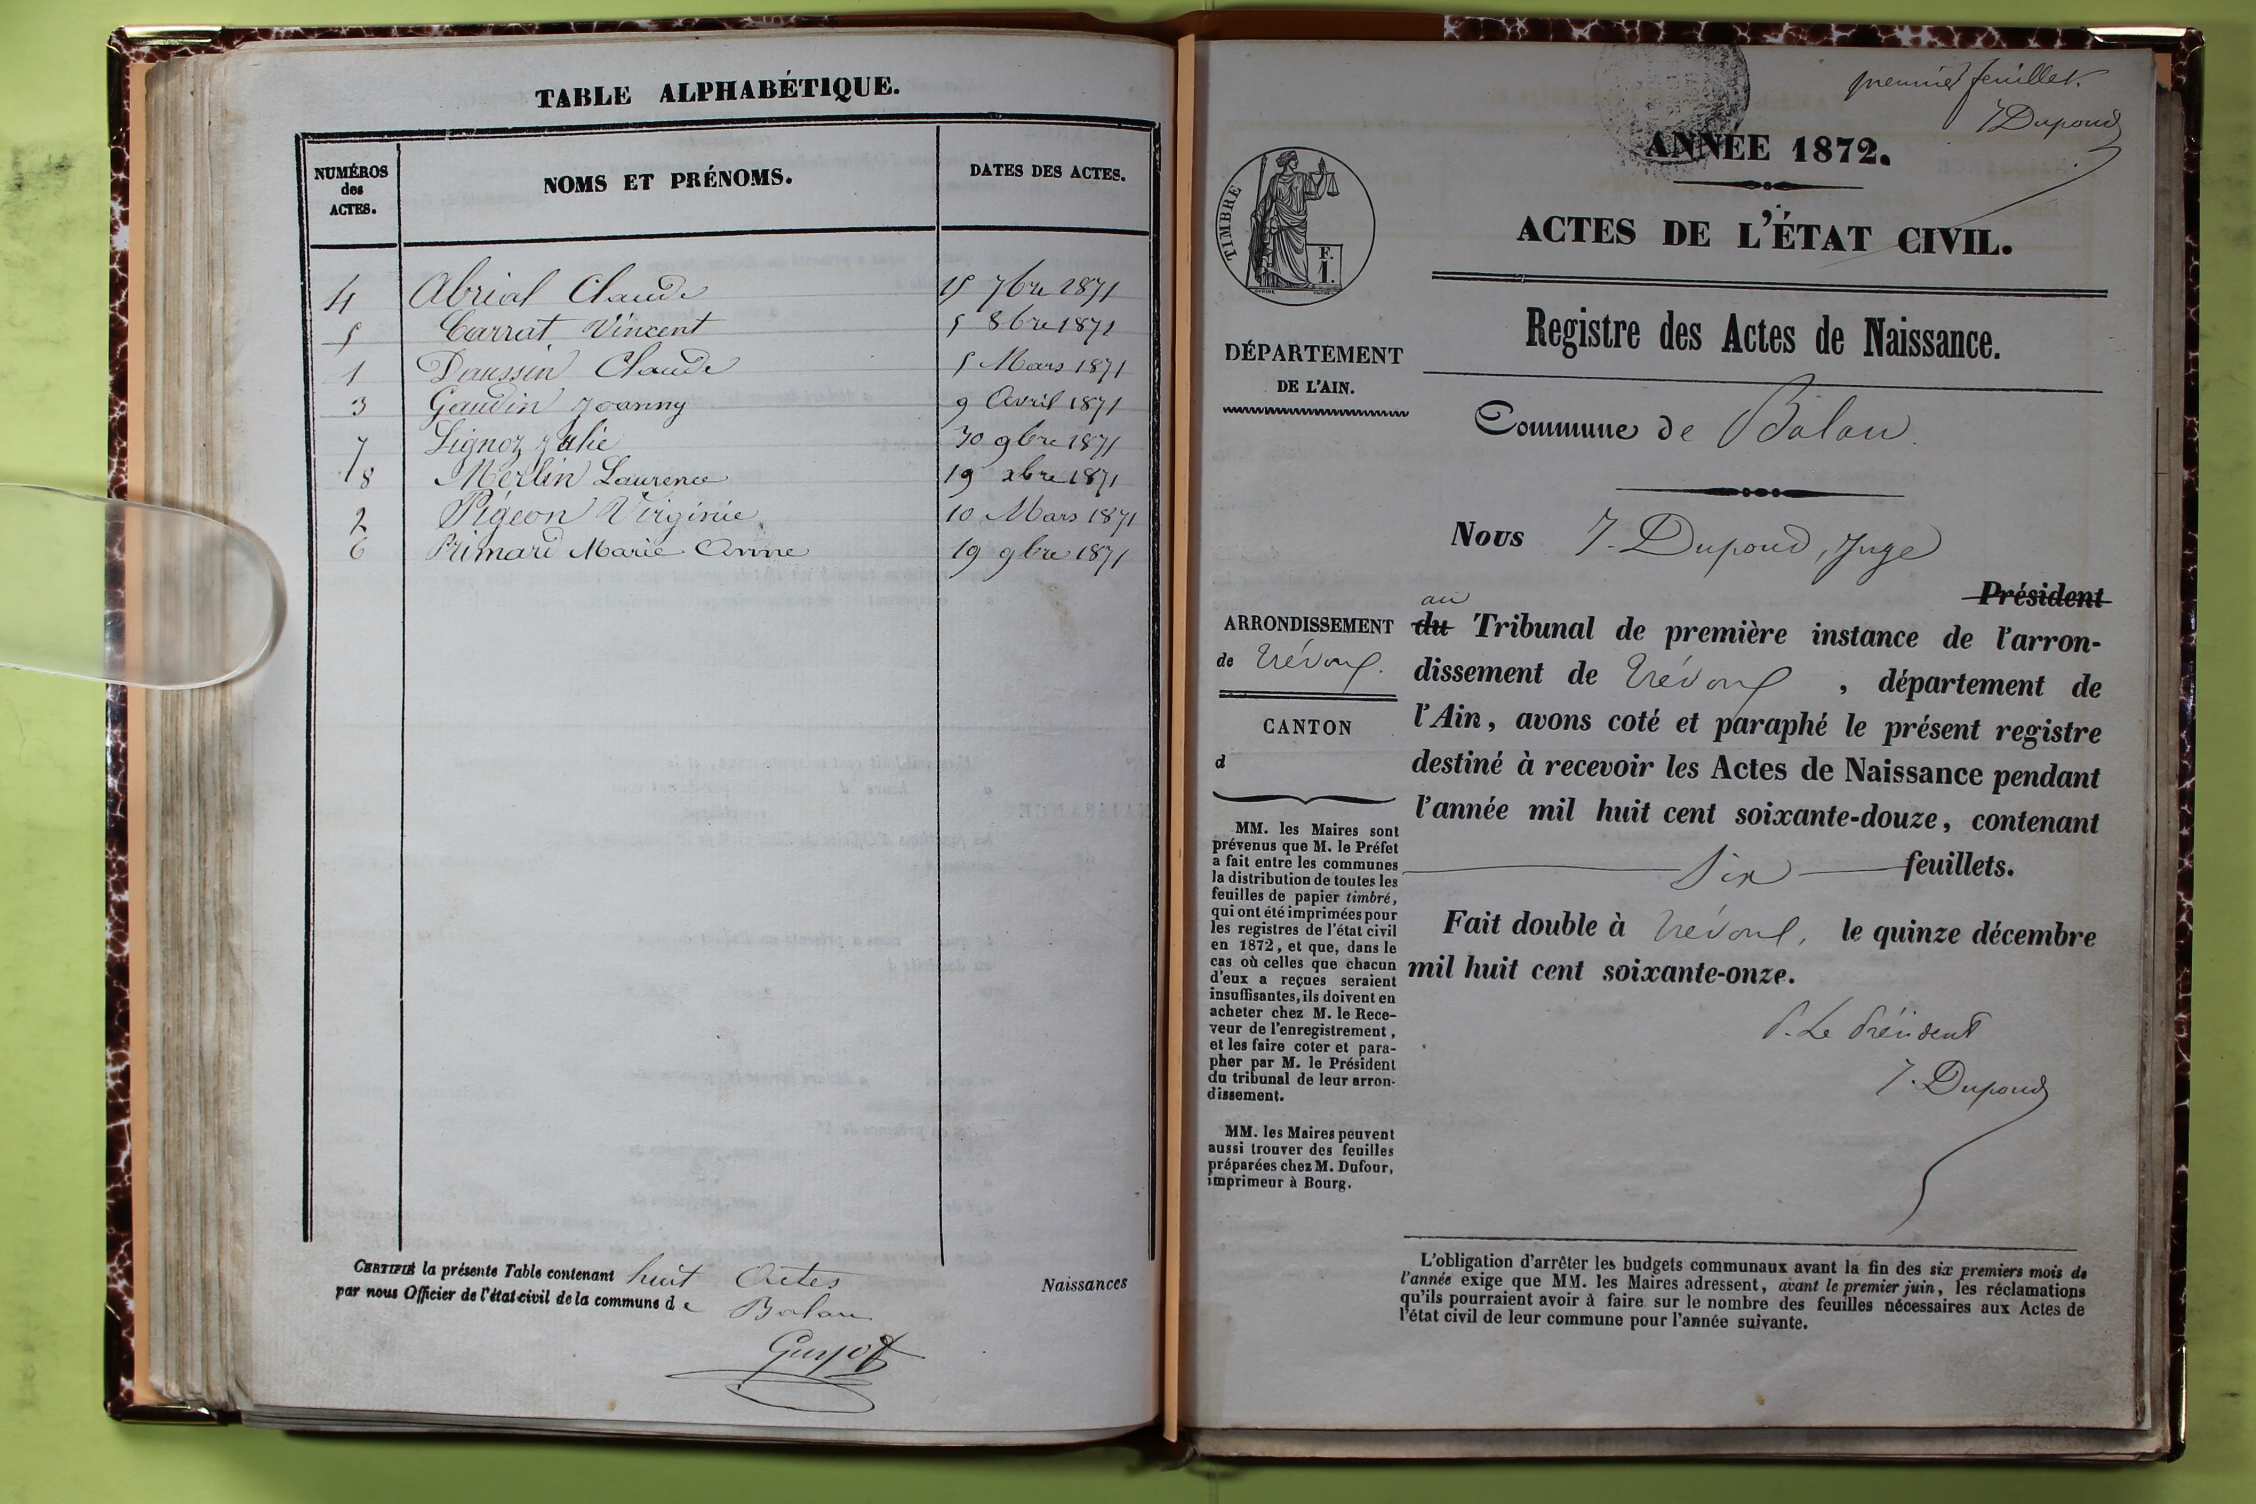 TABLE ALPHABÉTIQUE.
NUMÉROS des ACTES. NOMS ET PRÉNOMS. DATES DES ACTES.
4 Abrial Claude 15 7bre 1871
5 Carrat Vincent 5 8bre 1871
1 Daussin Claude 5 Mars 1871
3 Gaudin Joanny 9 Avril 1871
7 Lignoz Julie 30 9bre 1871
8 Merlin Laurence 19 xbre 1871
2 Pigeon Virginie 10 Mars 1871
6 Primard Marie Anne 19 9bre 1871
CERTIFIÉ la présente Table contenant huit Actes
par nous Officier de l'état-civil de la commune de Balan
Guyot
Naissances
premier feuillet.
J Dupond
ANNÉE 1872.
ACTES DE L'ÉTAT CIVIL.
TIMBRE
1 F.
Registre des Actes de Naissance.
DÉPARTEMENT
DE L'AIN.
Commune de Balan.
Nous J. Dupond, Juge
Président
au
du Tribunal de première instance de l'arron-
dissement de Trévoux, département de
l'Ain, avons coté et paraphé le présent registre
destiné à recevoir les Actes de Naissance pendant
l'année mil huit cent soixante-douze, contenant
Six feuillets.
Fait double à Trévoux, le quinze décembre
mil huit cent soixante-onze.
P. Le Président
J. Dupond
ARRONDISSEMENT
de Trévoux.
CANTON
d
MM. les Maires sont
prévenus que M. le Préfet
a fait entre les communes
la distribution de toutes les
feuilles de papier timbré,
qui ont été imprimées pour
les registres de l'état civil
en 1872, et que, dans le
cas où celles que chacun
d'eux a reçues seraient
insuffisantes, ils doivent en
acheter chez M. le Rece-
veur de l'enregistrement,
et les faire coter et para-
pher par M. le Président
du tribunal de leur arron-
dissement.
MM. les Maires peuvent
aussi trouver des feuilles
préparées chez M. Dufour,
imprimeur à Bourg.
L'obligation d'arrêter les budgets communaux avant la fin des six premiers mois de
l'année exige que MM. les Maires adressent, avant le premier juin, les réclamations
qu'ils pourraient avoir à faire sur le nombre des feuilles nécessaires aux Actes de
l'état civil de leur commune pour l'année suivante.